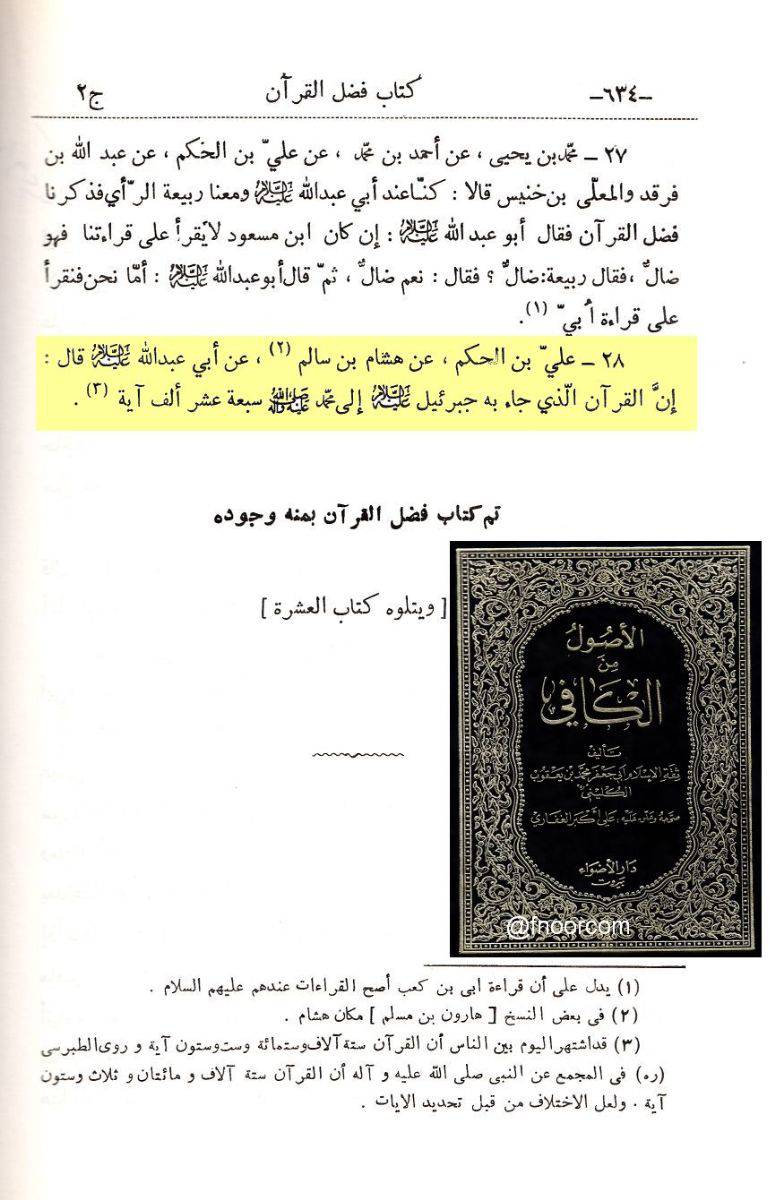 ج٢ كتاب فضل القرآن -٦٣٤-
٢٧ ـ محمّد بن يحيى ، عن أحمد بن محمّد ، عن عليّ بن الحكم ، عن عبد الله بن
فرقد والمعلّى بن خنيس قالا : كنّا عند أبي عبدالله عليه السلام ومعنا ربيعة الرّأي فذكرنا
فضل القرآن فقال أبو عبد الله عليه السلام : إن كان ابن مسعود لا يقرأ على قراءتنا فهو
ضالٌّ ، فقال ربيعة: ضالٌّ ؟ فقال : نعم ضالٌّ ، ثمّ قال أبو عبدالله عليه السلام : أمّا نحن فنقرأ
على قراءة أُبيّ (١).
٢٨ ـ عليّ بن الحكم ، عن هشام بن سالم (٢) ، عن أبي عبدالله عليه السلام قال :
إنَّ القرآن الّذي جاء به جبرئيل عليه السلام إلى محمّد صلى الله عليه وآله سبعة عشر ألف آية (٣) .
تم كتاب فضل القرآن بمنه وجوده
[ ويتلوه كتاب العشرة ]
الأصول
من
الكافي
تأليف
ثقة الإسلام أبي جعفر محمد بن يعقوب
الكليني
صححه وعلق عليه : علي أكبر الغفاري
دار الأضواء
بيروت
@fnoorcom
(١) يدل على أن قراءة ابى بن كعب أصح القراءات عندهم عليهم السلام .
(٢) فى بعض النسخ [ هارون بن مسلم ] مكان هشام .
(٣) قد اشتهر اليوم بين الناس أن القرآن ستة آلاف وستمائة وست وستون آية و روى الطبرسى
(ره) فى المجمع عن النبى صلى الله عليه و آله أن القرآن ستة آلاف و مائتان و ثلاث وستون
آية . ولعل الاختلاف من قبل تحديد الايات .